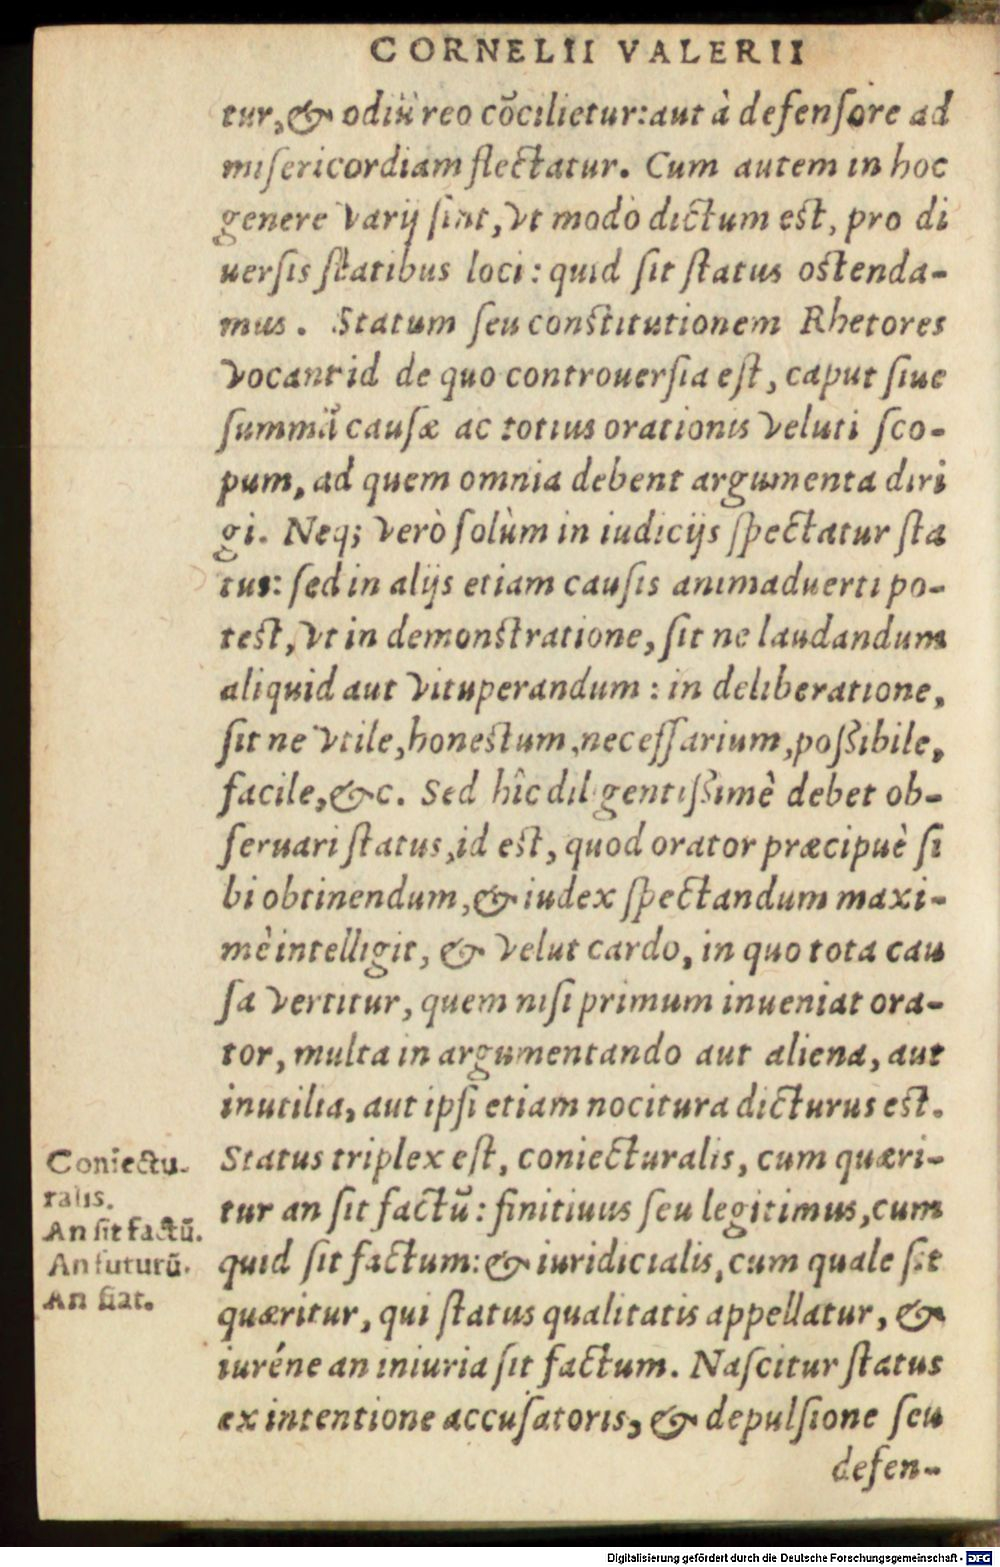 CORNELII VALERII
tur, & odiũ reo cõcilietur: aut à defensore ad
misericordiam flectatur. Cum autem in hoc
genere varij sint, vt modò dictum est, pro di
uersis statibus loci: quid sit status ostenda-
mus. Statum seu constitutionem Rhetores
vocant id de quo controuersia est, caput siue
summã causæ ac totius orationis veluti sco-
pum, ad quem omnia debent argumenta diri
gi. Neq; verò solùm in iudicijs spectatur sta
tus: sed in alijs etiam causis animaduerti po-
test, vt in demonstratione, sit ne laudandum
aliquid aut vituperandum: in deliberatione,
sit ne vtile, honestum, necessarium, possibile,
facile, &c. Sed hîc diligentissimè debet ob-
seruari status, id est, quod orator præcipuè si
bi obtinendum, & iudex spectandum maxi-
mè intelligit, & velut cardo, in quo tota cau
sa vertitur, quem nisi primum inueniat ora-
tor, multa in argumentando aut aliena, aut
inutilia, aut ipsi etiam nocitura dicturus est.
Status triplex est, coniecturalis, cum quæri-
tur an sit factũ: finitiuus seu legitimus, cum
quid sit factum: & iuridicialis, cum quale sit
quæritur, qui status qualitatis appellatur, &
iuréne an iniuria sit factum. Nascitur status
ex intentione accusatoris, & depulsione seu
defen-
Coniectu-
ralis.
An sit factũ.
An futurũ.
An fiat.
Digitalisierung gefördert durch die Deutsche Forschungsgemeinschaft - DFG